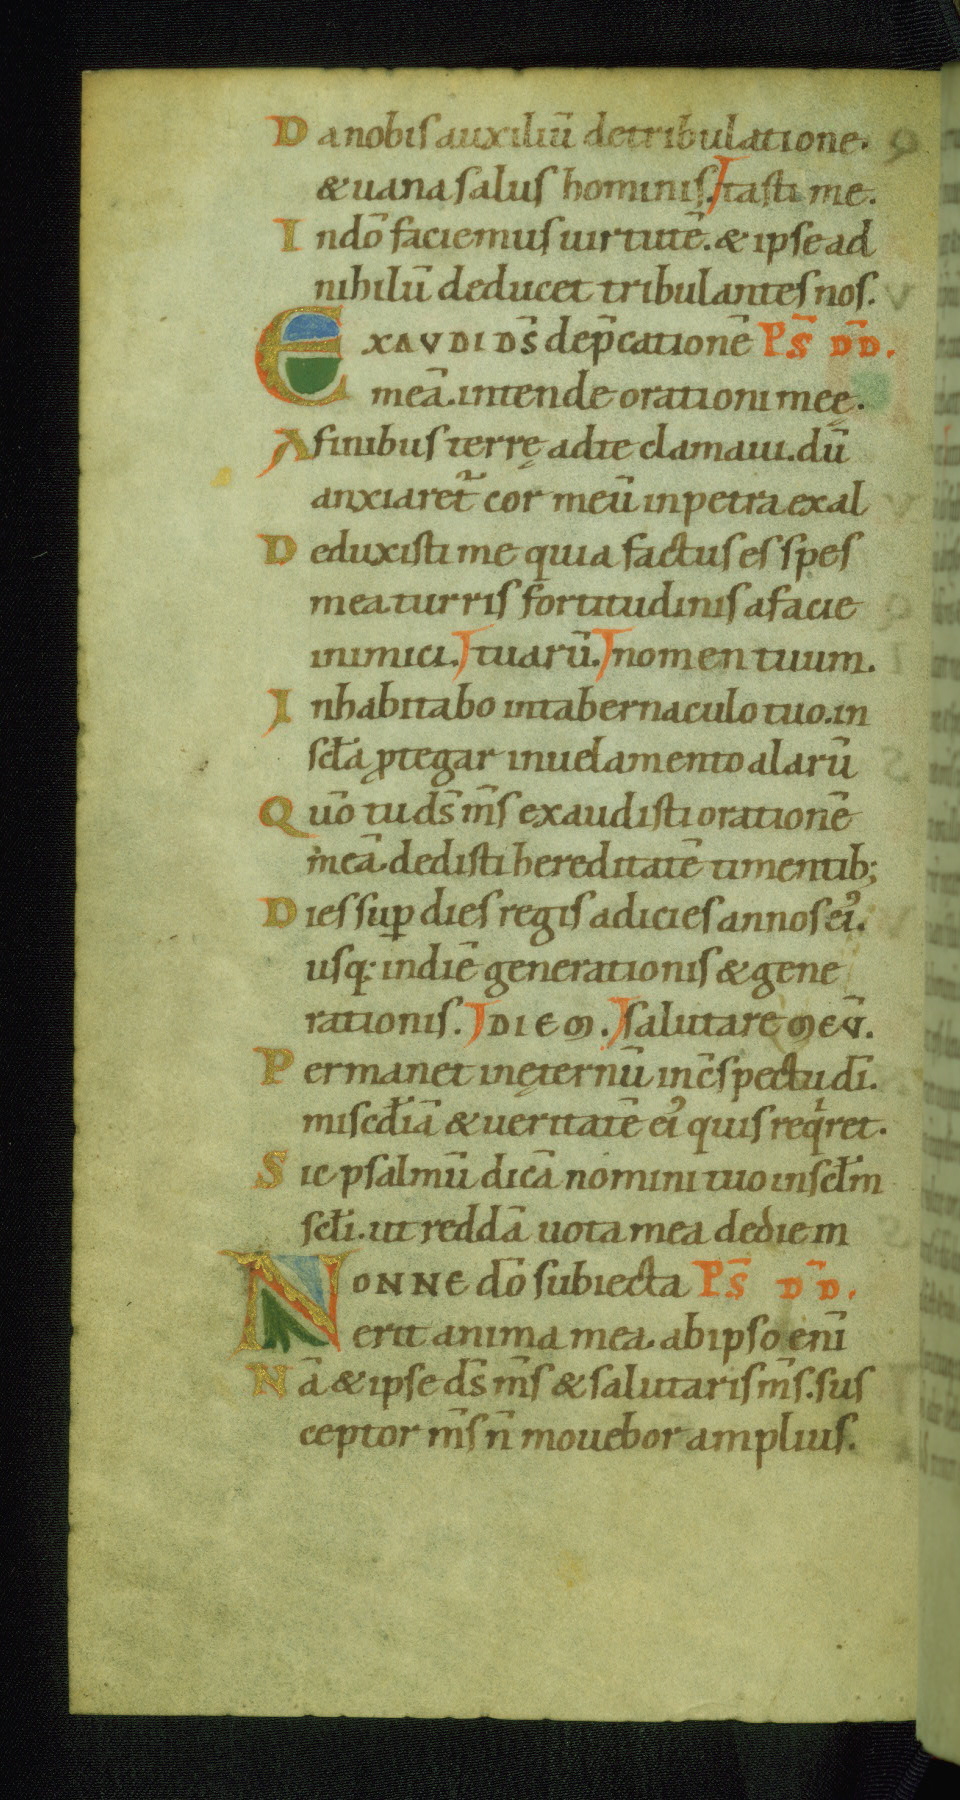 Da nobis auxiliū de tribulatione.
& uana salus hominis. tasti me.
In dō faciemus uirtutē. & ipse ad
nihilū deducet tribulantes nos.
EXAVDI DS̄ dep̄cationē PS̄ DD̄.
meā. intende orationi meę.
A finibus terrę ad te clamaui. dū
anxiaret̃ cor meū in petra exal
Deduxisti me quia factus es spes
mea turris fortitudinis a facie
inimici. tuarū. nomen tuum.
Inhabitabo in tabernaculo tuo. in
scła ꝓtegar in uelamento alarū
Quō tu ds̄ ms̄ exaudisti orationē
meā dedisti hereditatē timentib;
Dies sup̱ dies regis adicies annos ei᾽.
usq; in diē generationis & gene
rationis. DIEM. salutare MEV̄.
Permanet in ęternū in c̄spectu dī.
miscdīā & ueritatē ei᾽ quis reqͥret.
Sic psalmū dicā nomini tuo in scłm
scłi. ut reddā uota mea de die m
NONNE dō subiecta PS̄ DD̄.
erit anima mea. ab ipso enī
Nā & ipse ds̄ ms̄ & salutaris ms̄. sus
ceptor ms̄ n̄ mouebor amplius.